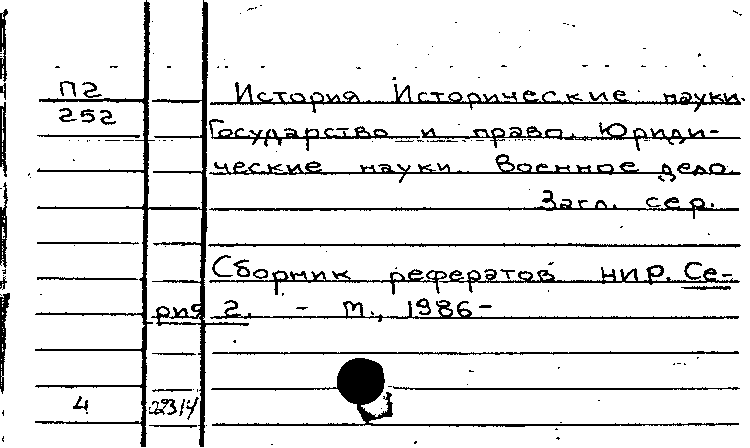 П2
252
История. Исторические науки.
Государство и право. Юриди-
ческие науки. Военное дело.
Загл. сер.
Сборник рефератов НИР. Се-
рия 2. - М., 1986-
4